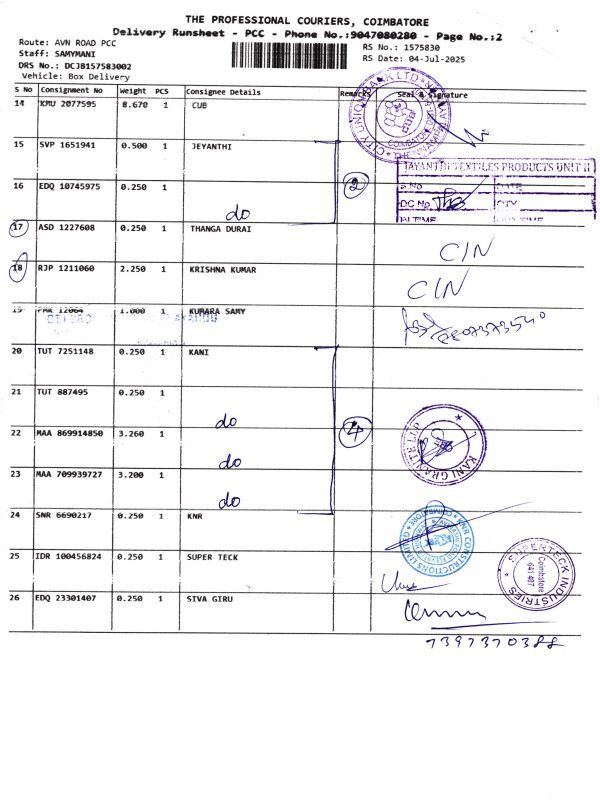 THE PROFESSIONAL COURIERS, COIMBATORE
Delivery Runsheet - PCC - Phone No.:9047080280 - Page No.:2
Route: AVN ROAD PCC
Staff: SAMYMANI
DRS No.: DCJB157583002
Vehicle: Box Delivery
RS No.: 1575830
RS Date: 04-Jul-2025
S No Consignment No Weight PCS Consignee Details Remarks Seal & Signature
14 KMU 2077595 8.670 1 CUB
CITY UNION BANK LTD
15 SVP 1651941 0.500 1 JEYANTHI
JAYANTHI TEXTILES PRODUCTS UNIT II
S.No DATE
DC No CITY
IN TIME
16 EDQ 10745975 0.250 1 do
2
17 ASD 1227608 0.250 1 THANGA DURAI CIN
18 RJP 1211060 2.250 1 KRISHNA KUMAR CIN
19 PMK 12064 1.000 1 KUMARA SAMY
20 TUT 7251148 0.250 1 KANI
21 TUT 887495 0.250 1 do
4
KANI GRANITE LLP
22 MAA 869914850 3.260 1 do
23 MAA 709939727 3.200 1 do
24 SNR 6690217 0.250 1 KNR
KNR CONSTRUCTIONS LIMITED
COIMBATORE
25 IDR 100456824 0.250 1 SUPER TECK
SUPERTECK INDUSTRIES
Coimbatore
641 407
26 EDQ 23301407 0.250 1 SIVA GIRU
7397370388